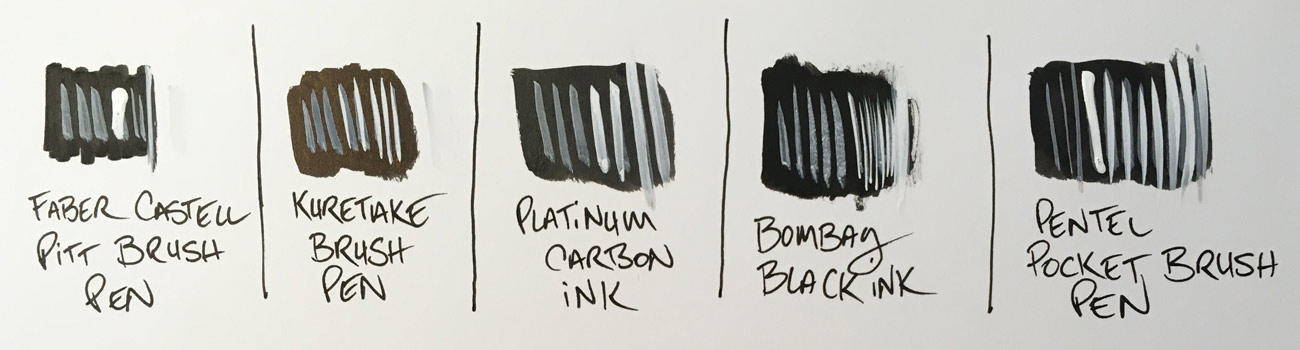 FABER CASTELL
PITT BRUSH
PEN
KURETAKE
BRUSH
PEN
PLATINUM
CARBON
INK
BOMBAY
BLACK INK
PENTEL
POCKET BRUSH
PEN